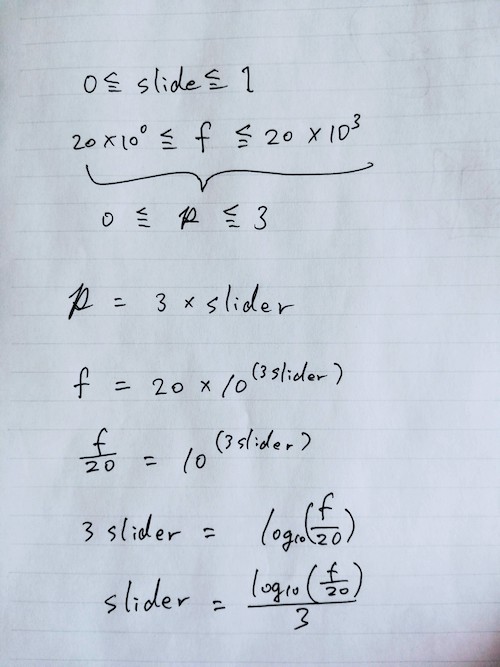 0 ≦ slide ≦ 1
20 × 10⁰ ≦ f ≦ 20 × 10³
0 ≦ p ≦ 3
p = 3 × slider
f = 20 × 10^(3 slider)
f/20 = 10^(3 slider)
3 slider = log₁₀(f/20)
slider = log₁₀(f/20)/3